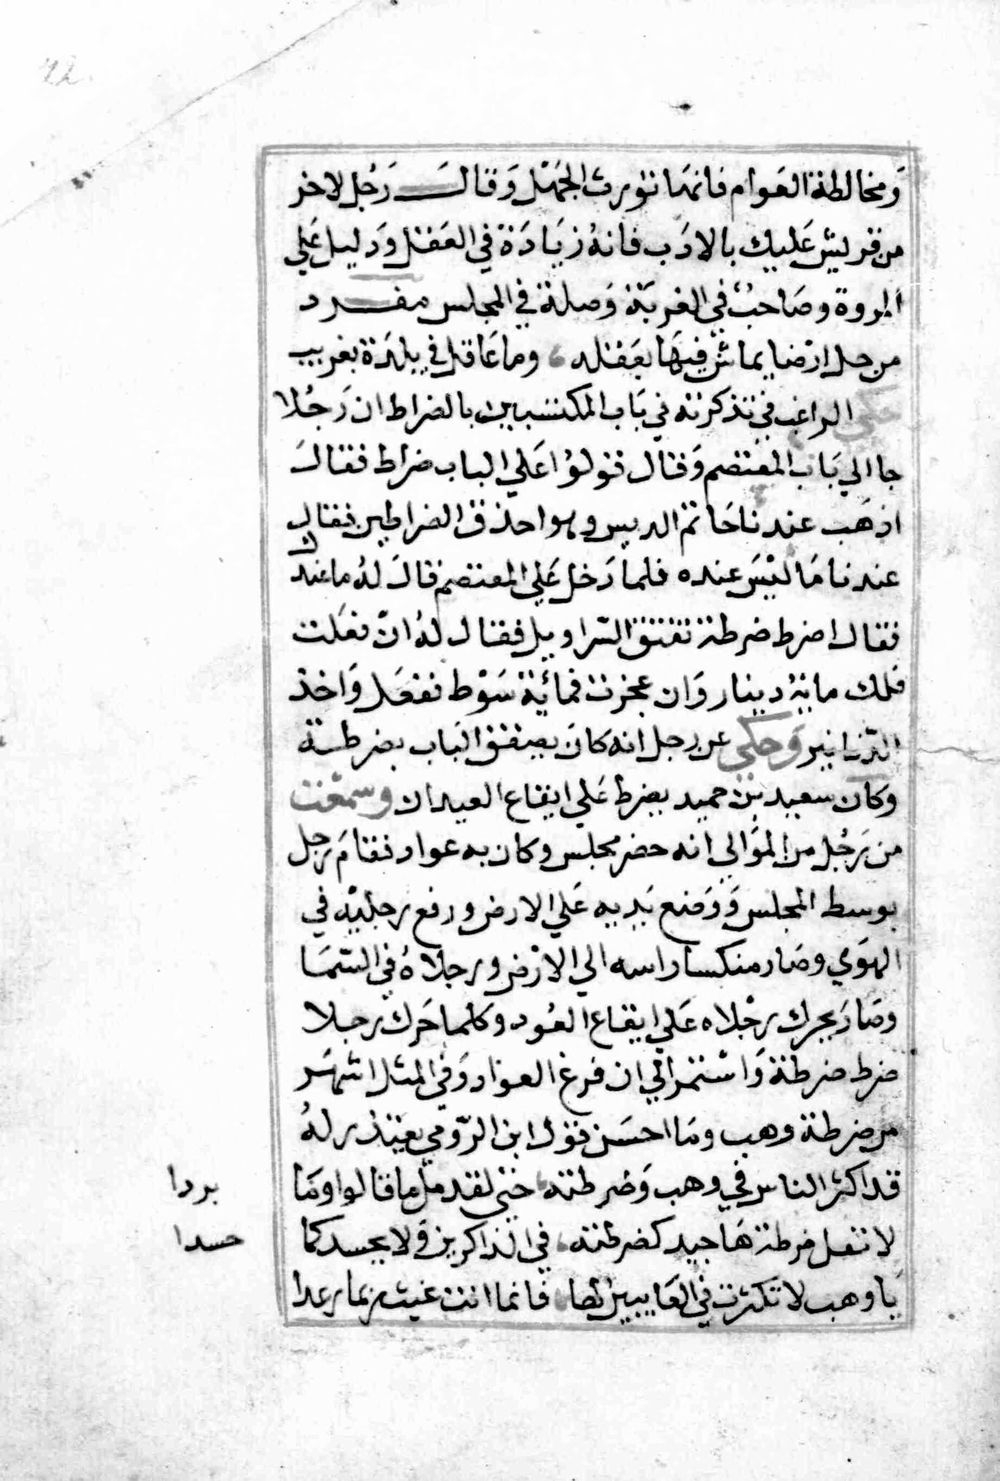 ومخالطة العوام فانها تورث الجهل وقال رجل لاخر
من قريش عليك بالادب فانه زيادة في العقل ودليل علي
المروة وصاحب في الغربة وصلة في المجلس مفرد
من حل ارضا يماش فيها بعقله وما عاقل في بلدة بغريب
حكي الراغب في تذكرته في باب المكتسبين بالضراط ان رجلا
جا الي باب المعتصم وقال قولوا علي الباب ضراط فقال
اذهب عندنا حاتم الديس وهو احذق الضراطين فقال
عندنا ما ليس عنده فلما دخل علي المعتصم قال له ما عندك
فقال اضرط ضرطة تفتق السراويل فقال له ان فعلت
فلك ماية دينار وان عجزت فمائة سوط ففعل واخذ
الدنانير وحكي عن رجل انه كان يصفق الباب بضرطة
وكان سعيد بن حميد يضرط علي ايقاع العيدان وسمعت
من رجل من الموالي انه حضر مجلس وكان به عواد فقام رجل
بوسط المجلس ووضع يديه علي الارض ورفع رجليه في
الهوي وصار منكسا راسه الي الارض ورجلاه في السما
وصار يحرك رجلاه علي ايقاع العود وكلما حرك رجلا
ضرط ضرطة واستمر الي ان فرغ العواد وفي المثل اشهر
من ضرطة وهب وما احسن قول ابن الرومي يعتذر له
قد اكثر الناس في وهب وضرطته حتي لقد مل ما قالوا وما
بردا
لا تفل ضرطة هاجيد كضرطته في الذاكرين ولا يحسد كما
حسدا
يا وهب لا تكترث في العايبين لها فانما انت غيث ربما رعدا